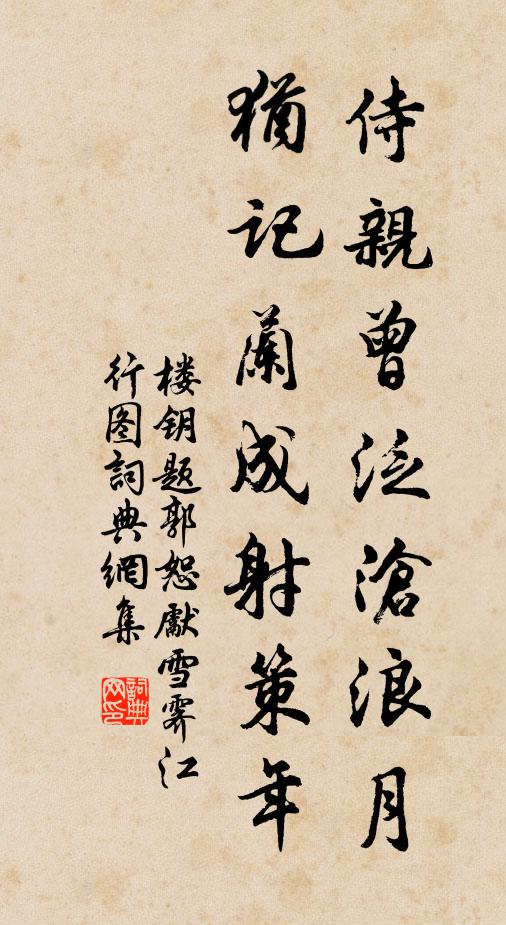 侍親曾泛滄浪月
猶記蘭成射策年
楼钥题郭恕獻雪霽江
行图詞典網集
詞典
网印